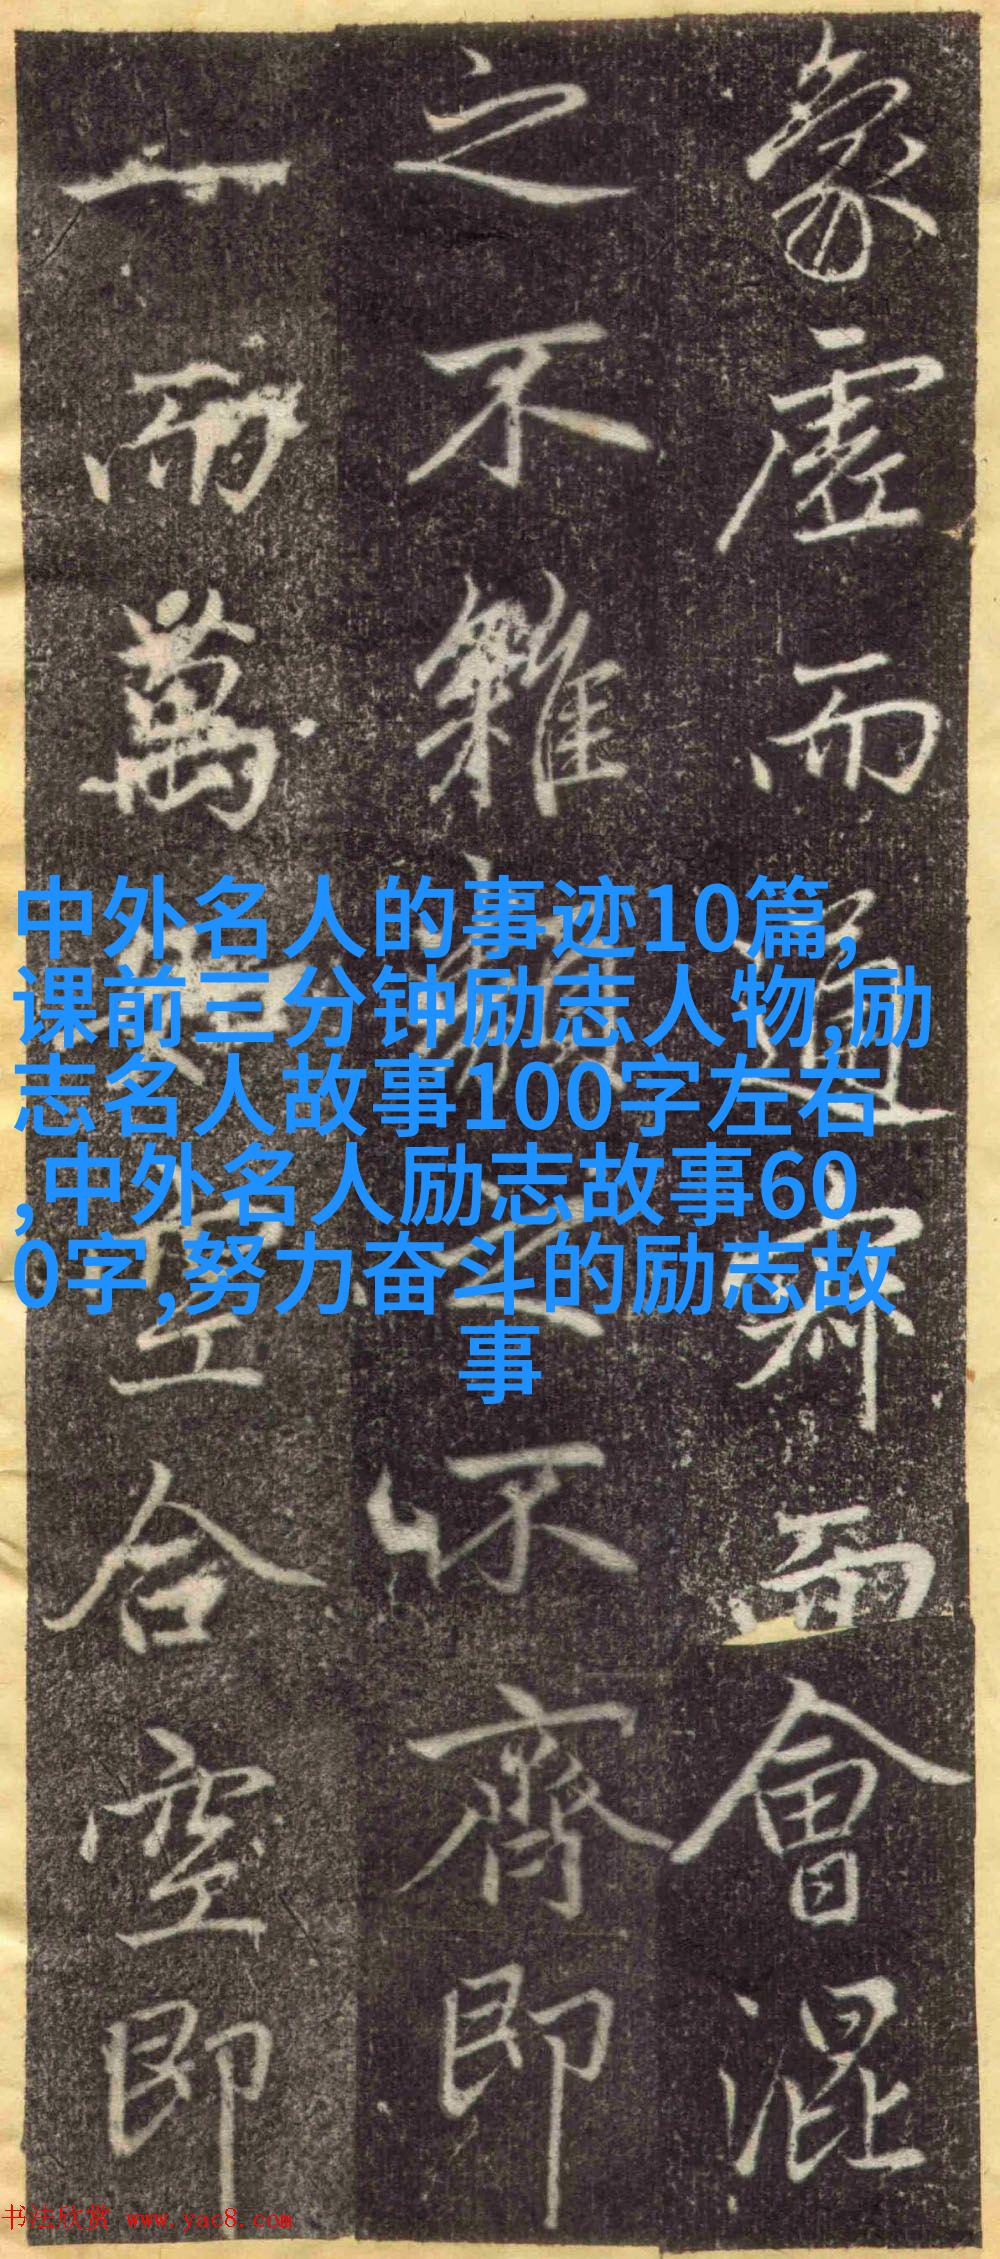 象虛而通寂而會混
之不雜之不齊即
一而萬空合空即
中外名人的事迹10篇,
课前三分钟励志人物,励
志名人故事100字左右
,中外名人励志故事60
0字,努力奋斗的励志故
事
书法欣赏 www.yac8.com